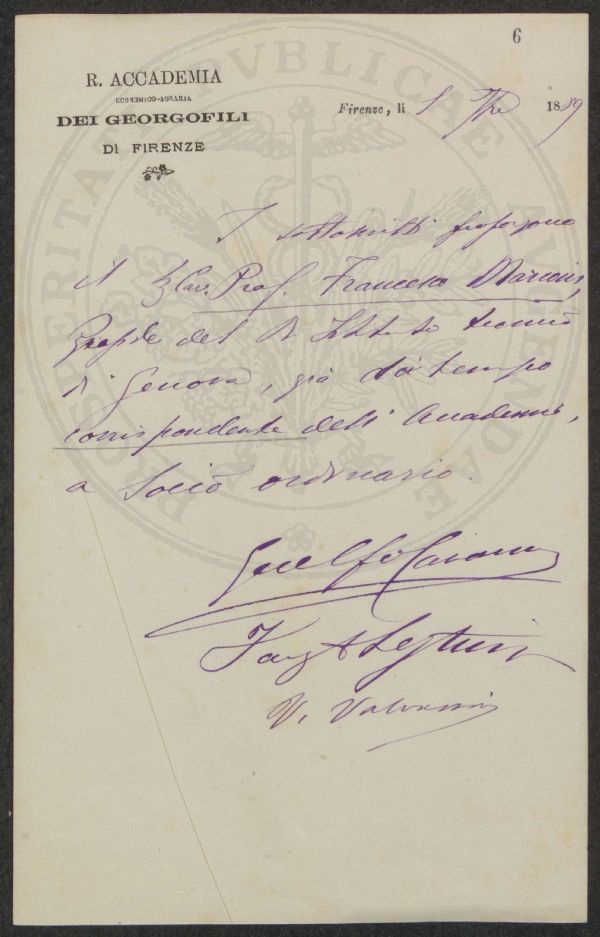 6
R. ACCADEMIA
ECONOMICO-AGRARIA
DEI GEORGOFILI
DI FIRENZE
Firenze, li 1889
PROSPERITATI PUBLICAE AUGENDAE
I sottoscritti propongono
il Cav. Prof. Francesco
Preside del R. Istituto tecnico
di Genova, già da tempo
corrispondente dell' Accademia,
a Socio ordinario.
V. Valvassori